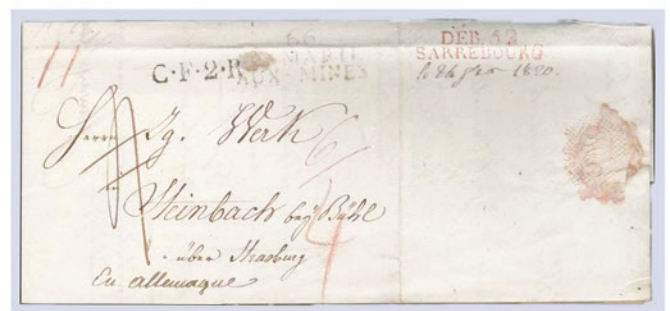 11
C·F·2·R
66
MARIE
AUX-MINES
DEB. 52
SARREBOURG
1820.
Herrn Ig. Werk
Steinbach bey Bühl
über Strasburg
En allemagne
6
4